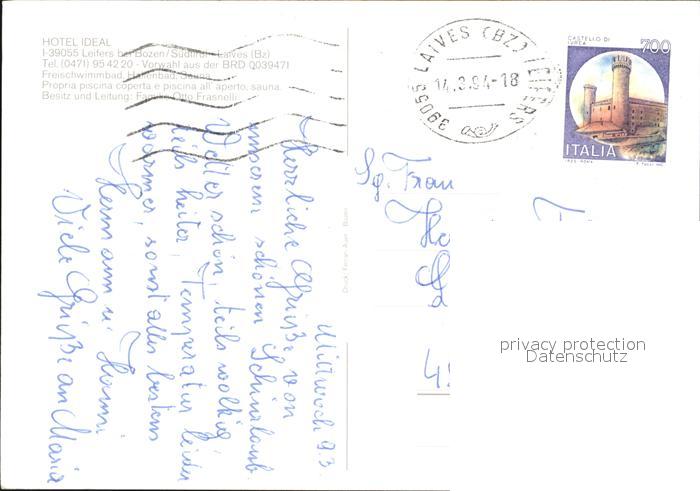 HOTEL IDEAL
I-39055 Leifers bei Bozen/Südtirol - Laives (Bz)
Tel. (0471) 95 42 20 - Vorwahl aus der BRD 0039471
Freischwimmbad, Hallenbad, Sauna
Propria piscina coperta e piscina all'aperto, sauna.
Besitz und Leitung: Familie Otto Frasnelli
39055 LAIVES (BZ) / LEIFERS
14.3.94-18
CASTELLO DI
IVREA
700
ITALIA
Mittwoch 9.3.
Herrliche Grüße von
unserem schönen Schiurlaub.
Wetter schön, teils wolkig,
teils heiter, Temperatur leider
wärmer, sonst alles bestens
Hermann u.
Viele Grüße an Maria
Druck: Ferrari-Auer - Bozen
Sg. Frau
privacy protection
Datenschutz